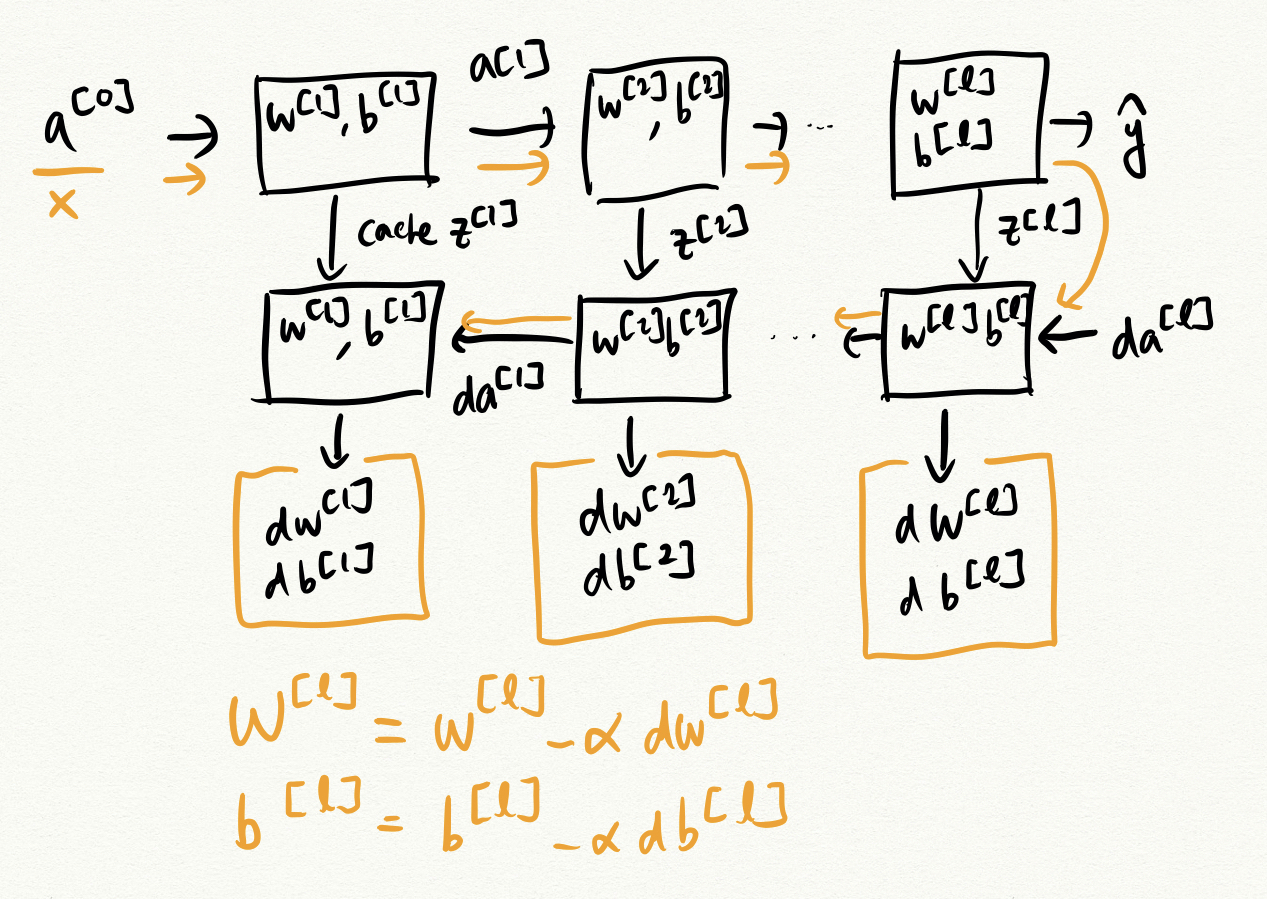 a^[0] → w^[1], b^[1] a^[1] → w^[2], b^[2] → ... w^[l] → ŷ
x b^[l]
cache z^[1] z^[2] z^[l]
w^[1], b^[1] da^[1] w^[2] b^[2] ... w^[l] b^[l] da^[l]
dw^[1] dw^[2] dw^[l]
db^[1] db^[2] db^[l]
W^[l] = w^[l] - α dw^[l]
b^[l] = b^[l] - α db^[l]